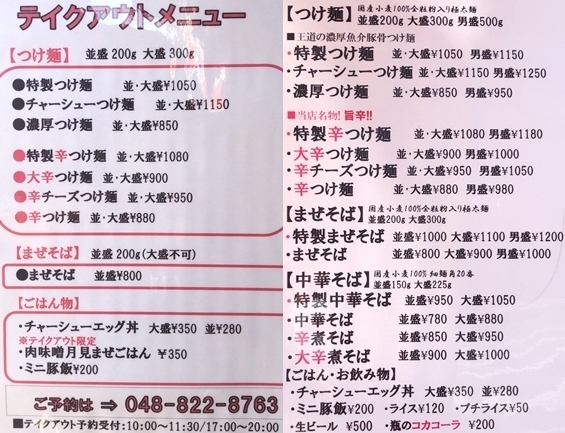 テイクアウトメニュー
【つけ麺】 並盛 200g 大盛 300g
●特製つけ麺 並・大盛¥1050
●チャーシューつけ麺 並・大盛¥1150
●濃厚つけ麺 並・大盛¥850
●特製辛つけ麺 並・大盛¥1080
●大辛つけ麺 並・大盛¥900
●辛チーズつけ麺 並・大盛¥950
●辛つけ麺 並・大盛¥880
【まぜそば】 並盛 200g(大盛不可)
●まぜそば 並盛¥800
【ごはん物】
・チャーシューエッグ丼 大盛¥350 並¥280
※テイクアウト限定
・肉味噌月見まぜごはん ¥350
・ミニ豚飯¥200
ご予約は ⇒ 048-822-8763
■テイクアウト予約受付:10:00～11:30/17:00～20:00
【つけ麺】 国産小麦100%全粒粉入り極太麺
並盛200g 大盛300g 男盛500g
■王道の濃厚魚介豚骨つけ麺
・特製つけ麺 並・大盛¥1050 男盛¥1150
・チャーシューつけ麺 並・大盛¥1150 男盛¥1250
・濃厚つけ麺 並・大盛¥850 男盛¥950
■当店名物! 旨辛!!
・特製辛つけ麺 並・大盛¥1080 男盛¥1180
・大辛つけ麺 並・大盛¥900 男盛¥1000
・辛チーズつけ麺 並・大盛¥950 男盛¥1050
・辛つけ麺 並・大盛¥880 男盛¥980
【まぜそば】 国産小麦100%全粒粉入り極太麺
並盛200g 大盛300g
・特製まぜそば 並盛¥1000 大盛¥1100 男盛¥1200
・まぜそば 並盛¥800 大盛¥900 男盛¥1000
【中華そば】 国産小麦100% 細麺角20番
並盛150g 大盛225g
・特製中華そば 並盛¥950 大盛¥1050
・中華そば 並盛¥780 大盛¥880
・辛煮そば 並盛¥850 大盛¥950
・大辛煮そば 並盛¥900 大盛¥1000
【ごはん・お飲み物】
・チャーシューエッグ丼 大盛¥350 並¥280
・ミニ豚飯¥200 ・ライス¥120 ・プチライス¥50
・生ビール ¥500 ・瓶のコカコーラ ¥200